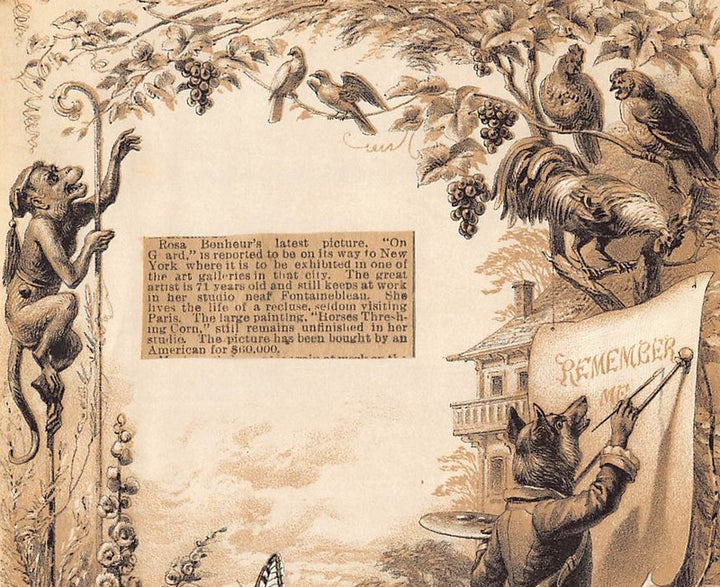 Rosa Bonheur's latest picture, "On
G ard," is reported to be on its way to New
York where it is to be exhibited in one of
the art galleries in that city. The great
artist is 71 years old and still keeps at work
in her studio near Fontanebleau. She
lives the life of a recluse, seldon visiting
Paris. The large painting, "Horses Thresh-
ing Corn," still remains unfinished in her
studio. The picture has been bought by an
American for $60,000.
REMEMBER
ME